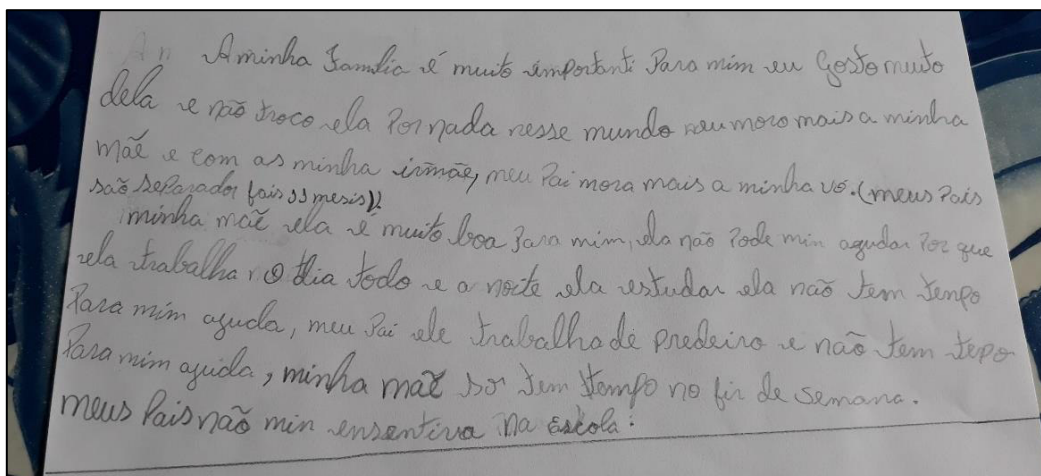 Aminha Familia é muito importanti Para mim eu Gosto muito
dela e não troco ela Por nada nesse mundo eu moro mais a minha
mãe e com as minha irmãe, meu Pai mora mais a minha vó. (meus Pais
são Separador fais 11 mesis)
minha mãe ela é muito boa Para mim, ela não Pode min agudar Por que
ela trabalhar o dia todo e a noite ela estudar ela não tem tenpo
Para mim aguda, meu Pai ele trabalha de Predeiro e não tem tepo
Para mim aguida, minha mãe so tem tempo no fir de Semana.
meus Pais não min ensentiva na escola.